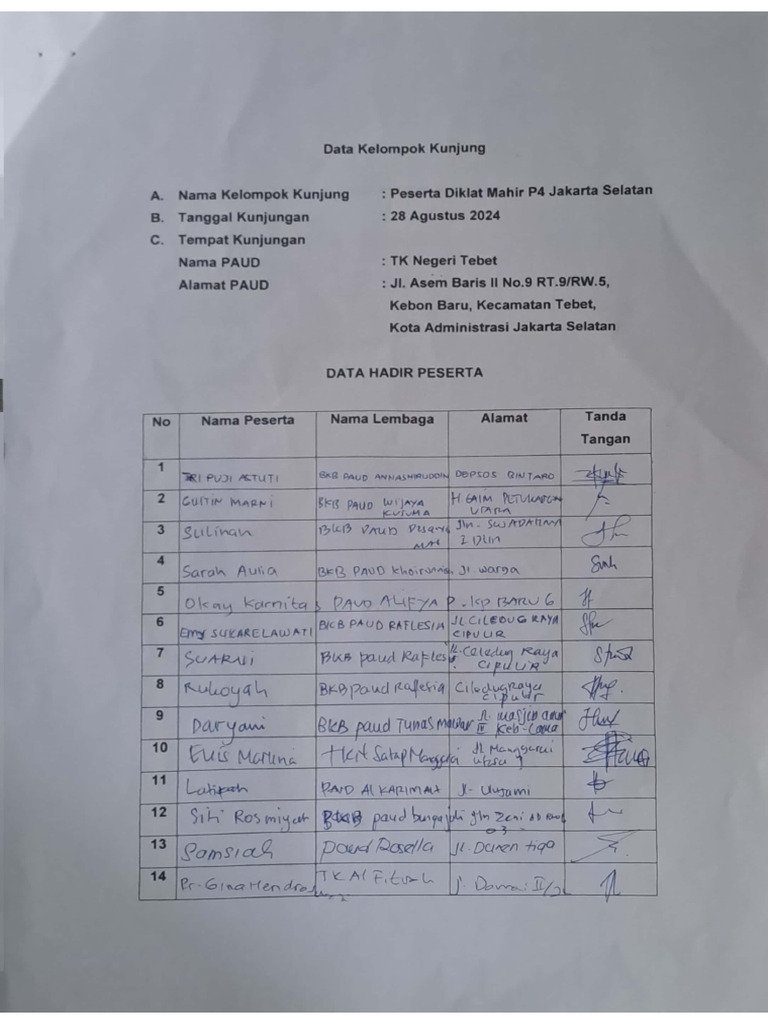 Data Kelompok Kunjung
A. Nama Kelompok Kunjung : Peserta Diklat Mahir P4 Jakarta Selatan
B. Tanggal Kunjungan : 28 Agustus 2024
C. Tempat Kunjungan
Nama PAUD : TK Negeri Tebet
Alamat PAUD : Jl. Asem Baris II No.9 RT.9/RW.5,
Kebon Baru, Kecamatan Tebet,
Kota Administrasi Jakarta Selatan
DATA HADIR PESERTA
No Nama Peserta Nama Lembaga Alamat Tanda
Tangan
1 SRI PUJI ASTUTI BKB PAUD ANNASHIRUDDIN DEPSOS BINTARO
2 MARNI BKB PAUD WIJAYA H GAIM PETUKANGAN
KUSUMA UTARA
3 Sulinah BKB PAUD Jln. SWADARMA
4 Sarah Aulia BKB PAUD Jl warga
5 Okay Karnita PAUD ALIFYA P. KP BARU 6
6 Emy SUKARELAWATI BKB PAUD RAFLESIA JL CILEDUG RAYA
CIPULIR
7 SUARNI BKB paud Raflesia Jl. Celedug Raya
CIPULIR
8 Rukoyah BKB paud Raflesia Ciledug raya
cipulir
9 Daryani BKB paud Tunas Mawar Jl. masjid
III Keb-Lama
10 Euis Marlina TKN Satap Manggarai Jl Manggarai
utara
11 Latipah PAUD AL KARIMAH Jl.
12 Siti Rosmiyah BKB paud Jln Zeni AD
03
13 Samsiah paud Rosella Jl. Duren tiga
14 Gina Hendra TK Al Fitrah Jl. Damai II